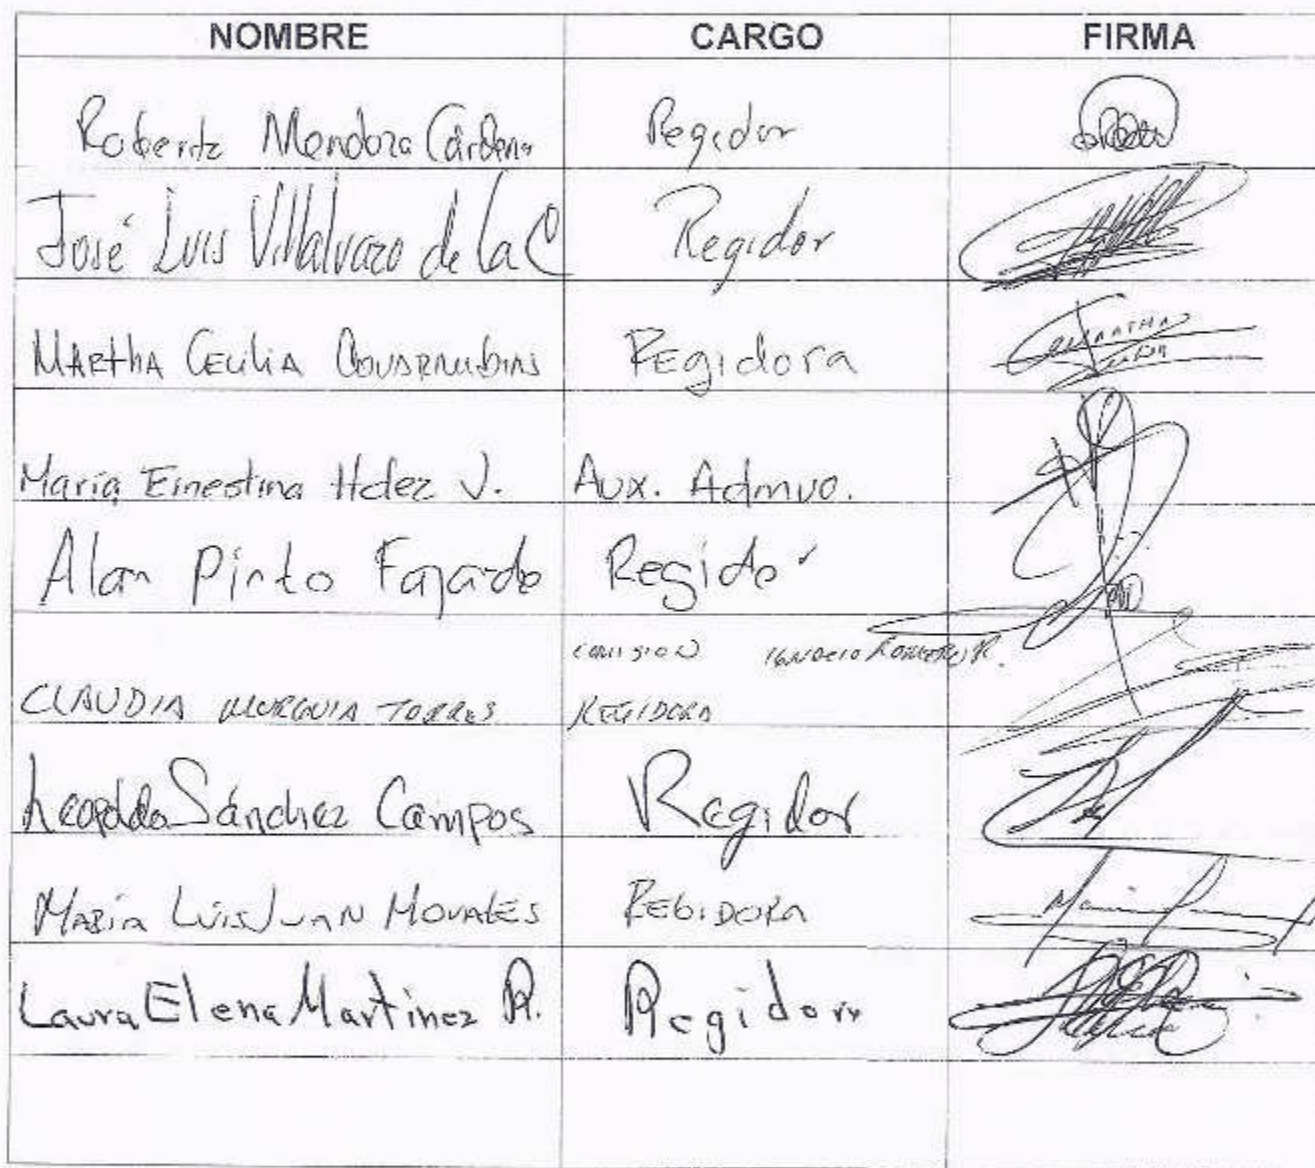 NOMBRE CARGO FIRMA
Roberto Mendoza Cárdenas Regidor
José Luis Villalvazo de la C Regidor
MARTHA CECILIA COVARRUBIAS REgidora
María Ernestina Hdez J. Aux. Admvo.
Alan Pinto Fajardo Regidor
COMISION IGNACIO
CLAUDIA MURGUIA TORRES REGIDORA
Leopoldo Sánchez Campos Regidor
MARÍA LUIS JUAN MORALES REGIDORA
Laura Elena Martínez R. Regidora